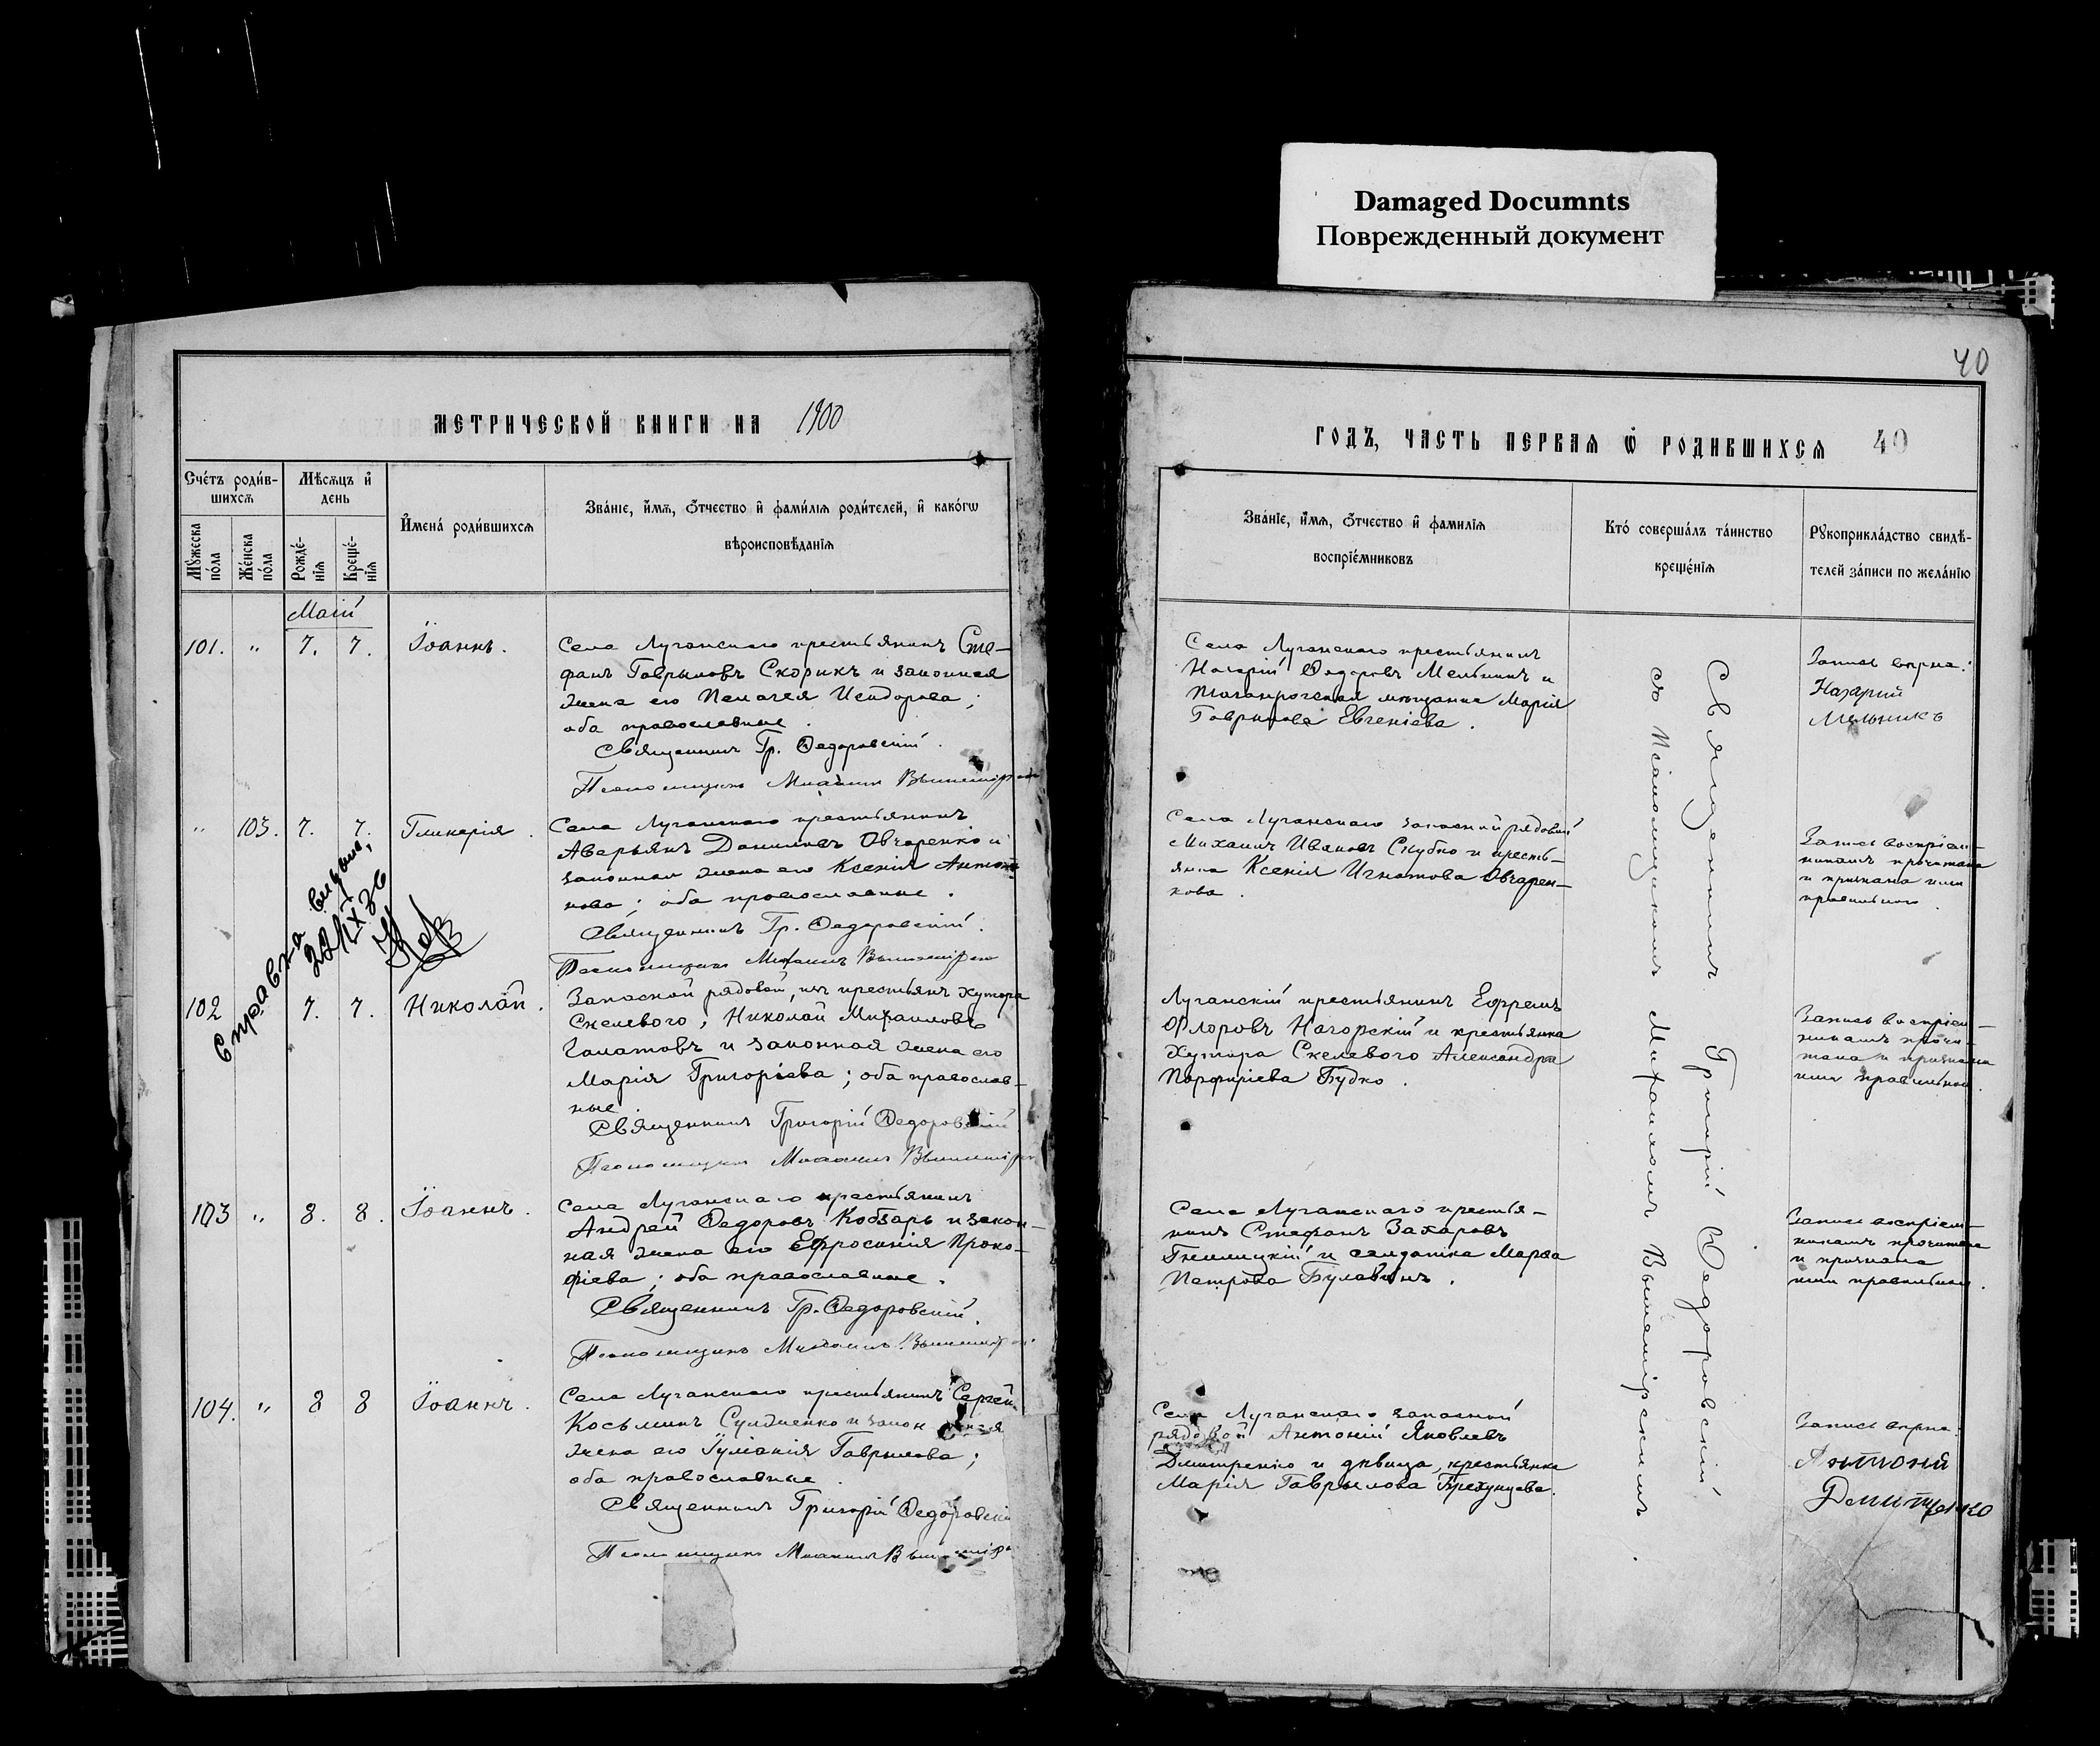 Damaged Documnts
Поврежденный документ
МЕТРИЧЕСКОЙ КНИГИ НА 1900
Сче́тъ роди́в-
шихсѧ
Мѣсѧцъ и҆
день
И҆мена́ роди́вшихсѧ
Зва́нїе, и҆́мѧ, ѻ҆́тчество и҆ фами́лїѧ роди́телей, и҆ како́гѡ
вѣроисповѣ́данїѧ
Мꙋ́жеска
по́ла
Же́нска
по́ла
Рожде́-
нїѧ
Креще́-
нїѧ
Маій
101. " 7. 7. Іоаннъ.
Села Луганскаго крестьянинъ Сте-
фанъ Гавриловъ Скорикъ и законная
жена его Пелагея Исидорова;
оба православные.
Священникъ Гр. Федоровскій.
Псаломщикъ Михаилъ
" 103. 7. 7. Гликерія.
Села Луганскаго крестьянинъ
Аверьянъ Даниловъ Овчаренко и
законная жена его Ксенія Антоно-
нова; оба православные.
Священникъ Гр. Федоровскій.
Псаломщикъ Михаилъ
Справка выдана,
22/IX 36
102 7. 7. Николай.
Запасной рядовой, изъ крестьянъ хутора
Скелевого, Николай Михаиловъ
Галатовъ и законная жена его
Марія Григоріева; оба православ-
ные.
Священникъ Григорій Федоровскій
Псаломщикъ Михаилъ
103 " 8. 8. Іоаннъ.
Села Луганскаго крестьянинъ
Андрей Федоровъ Кобзарь и закон-
ная жена его Ефросинія Проко-
фіева; оба православные.
Священникъ Гр. Федоровскій.
Псаломщикъ Михаилъ
104. " 8 8 Іоаннъ.
Села Луганскаго крестьянинъ Сергей
Косьминъ и законная
жена его Іуліанія Гаврилова;
оба православные.
Священникъ Григорій Федоровскій
Псаломщикъ Михаилъ
40
ГОДЪ, ЧАСТЬ ПЕРВАЯ Ѡ҆ РОДИВШИХСѦ 40
Зва́нїе, и҆́мѧ, ѻ҆́тчество и҆ фами́лїѧ
воспрїе́мниковъ
Кто̀ соверша́лъ та́инство
креще́нїѧ
Рꙋкоприкла́дство свидѣ́-
телей за́писи по жела́нїю
Села Луганскаго крестьянинъ
Назарій Федоровъ Мельникъ и
Таганрогская мещанка Марія
Гаврилова Евгеніева.
Запись верна:
Назарий
Мельникъ
Села Луганскаго запасной рядовой
Михаилъ Ивановъ Скубко и кресть-
янка Ксенія Игнатова Овчарен-
кова.
Запись воспріем-
никамъ прочитана
и признана ими
правильною.
Луганскій крестьянинъ Ефремъ
Флоровъ Нагорскій и крестьянка
хутора Скелевого Александра
Порфиріева Будко.
Запись воспріем-
никамъ прочи-
тана и признана
ими правильной.
Села Луганскаго крестья-
нинъ Стефанъ Захаровъ
Гнилицкій и солдатка Марфа
Петрова Булавинъ.
Запись воспріем-
никамъ прочитана
и признана
ими правильной.
Села Луганскаго запасной
рядовой Антоній Яковлевъ
Дмитренко и девица, крестьянка
Марія Гаврилова
Запись верна.
Антоний
Дмитренко
Священникъ Григорій Федоровскій
съ Псаломщикомъ Михаиломъ